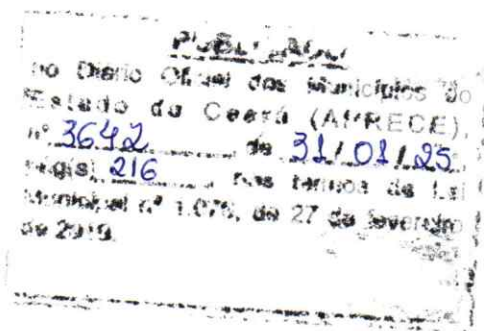 PUBLICADO
no Diário Oficial dos Municípios do
Estado do Ceará (APRECE),
nº 3642 de 31/01/25,
pág(s) 216, nos termos da Lei
Municipal nº 1.076, de 27 de fevereiro
de 2019.